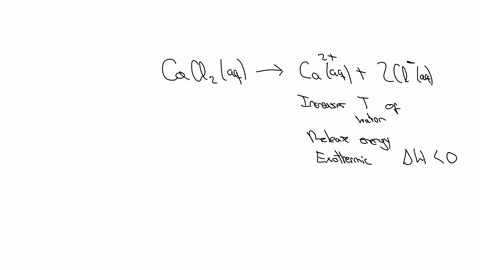 CaCl₂(aq) → Ca²⁺(aq) + 2Cl⁻(aq)
Increases T of
water
Release energy
Exothermic ΔH < 0